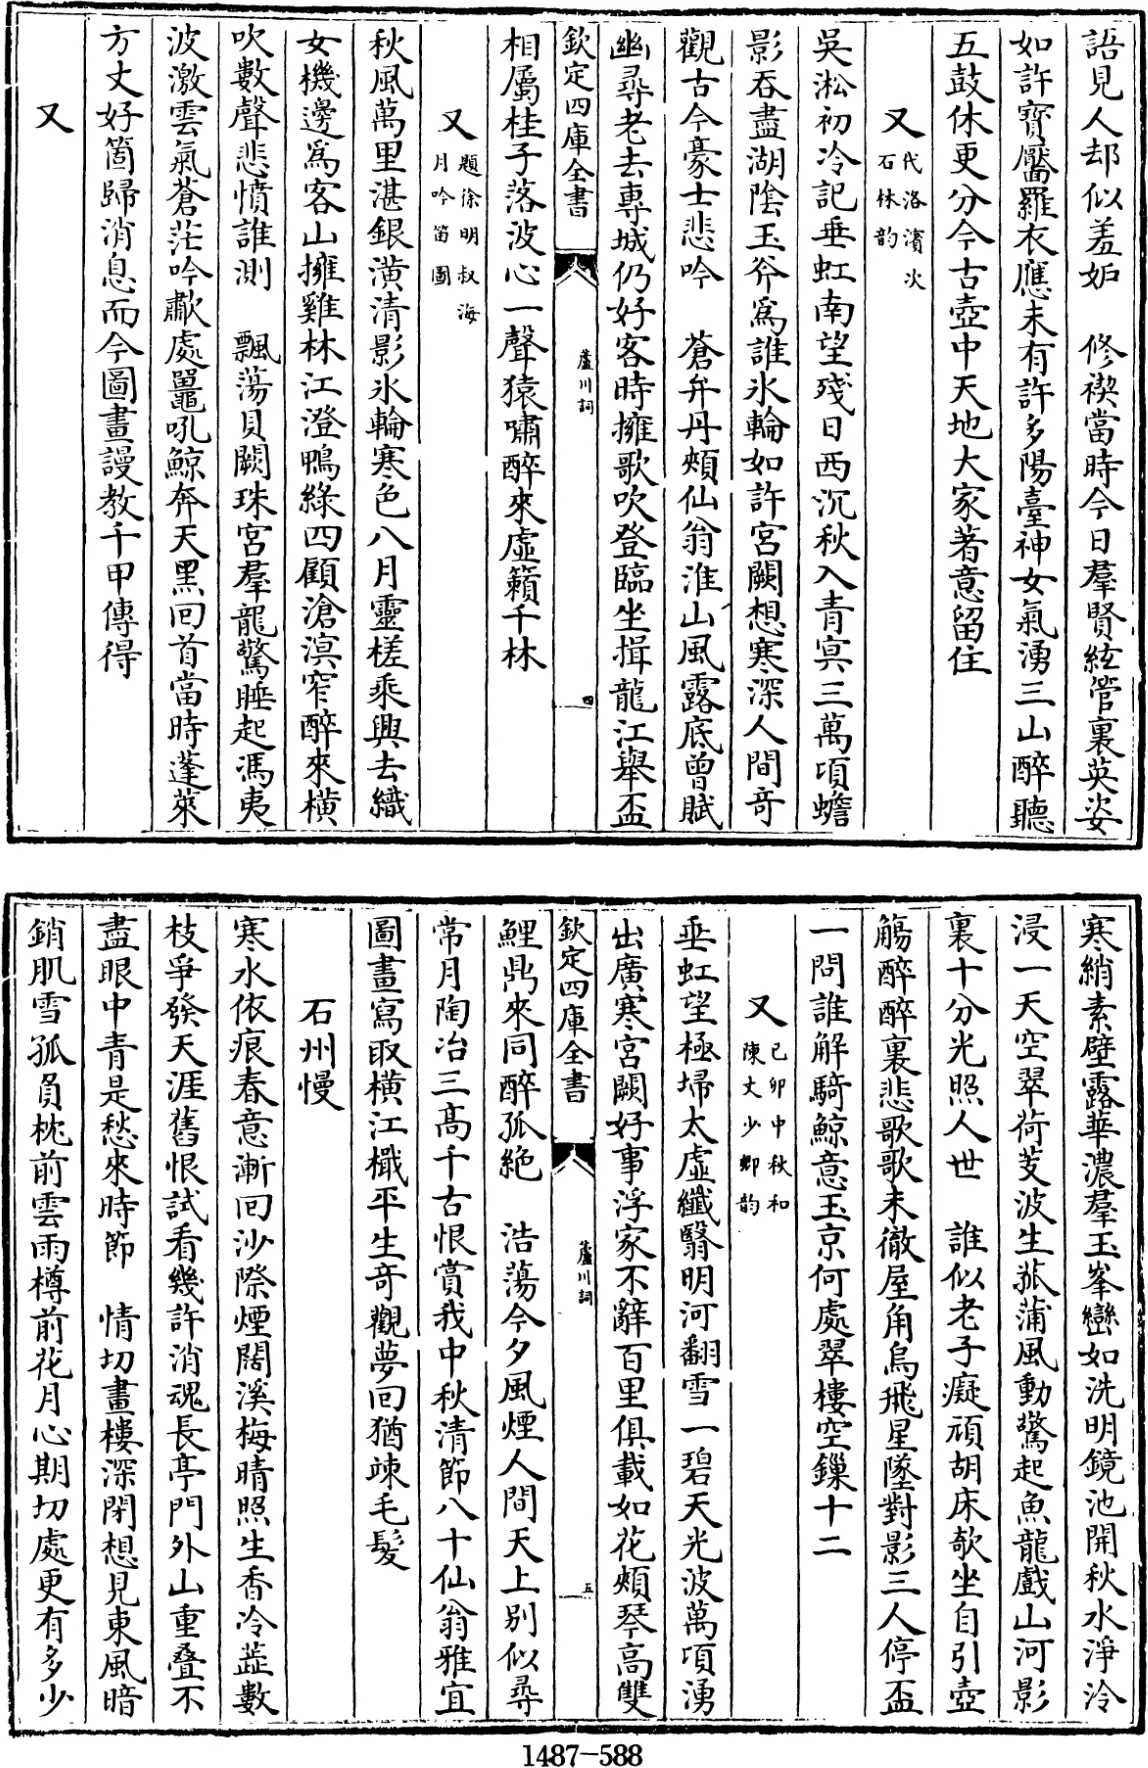 語見人却似羞妒　修禊當時今日羣賢絃管裏英姿
如許寶靨羅衣應未有許多陽臺神女氣湧三山醉聽
五鼓休更分今古壺中天地大家著意留住
又代洛濱次
石林韵
吳淞初冷記垂虹南望殘日西沉秋入青㝠三萬頃蟾
影吞盡湖陰玉斧爲誰氷輪如許宮闕想寒深人間竒
觀古今豪士悲吟　蒼弁丹頰仙翁淮山風露底曾賦
幽尋老去專城仍好客時擁歌吹登臨坐揖龍江舉盃
欽定四庫全書
蘆川詞
四
相屬桂子落波心一聲猿嘯醉來虛籟千林
又題徐明叔海
月吟笛圖
秋風萬里湛銀潢清影氷輪寒色八月靈槎乘興去織
女機邊爲客山擁雞林江澄鴨綠四顧滄溟窄醉來橫
吹數聲悲憤誰測　飄蕩貝闕珠宮羣龍驚睡起馮夷
波激雲氣蒼茫吟歗處鼉吼鯨奔天黑回首當時蓬萊
方丈好箇歸消息而今圖畫謾教千甲傳得
又
寒綃素壁露華濃羣玉峯巒如洗明鏡池開秋水淨冷
浸一天空翠荷芰波生菰蒲風動驚起魚龍戲山河影
裏十分光照人世　誰似老子癡頑胡床欹坐自引壺
觴醉醉裏悲歌歌未徹屋角烏飛星墜對影三人停盃
一問誰解騎鯨意玉京何處翠樓空鏁十二
又己卯中秋和
陳丈少卿韵
垂虹望極埽太虛纖翳明河翻雪一碧天光波萬頃湧
出廣寒宮闕好事浮家不辭百里俱載如花頰琴高雙
欽定四庫全書
蘆川詞
五
鯉鼎來同醉孤絶　浩蕩今夕風煙人間天上别似尋
常月陶冶三高千古恨賞我中秋清節八十仙翁雅宜
圖畫寫取橫江檝平生竒觀夢回猶竦毛髮
石州慢
寒水依痕春意漸回沙際煙闊溪梅晴照生香冷蘂數
枝爭發天涯舊恨試看幾許消魂長亭門外山重疊不
盡眼中青是愁來時節　情切畫樓深閉想見東風暗
銷肌雪孤負枕前雲雨樽前花月心期切處更有多少
1487-588